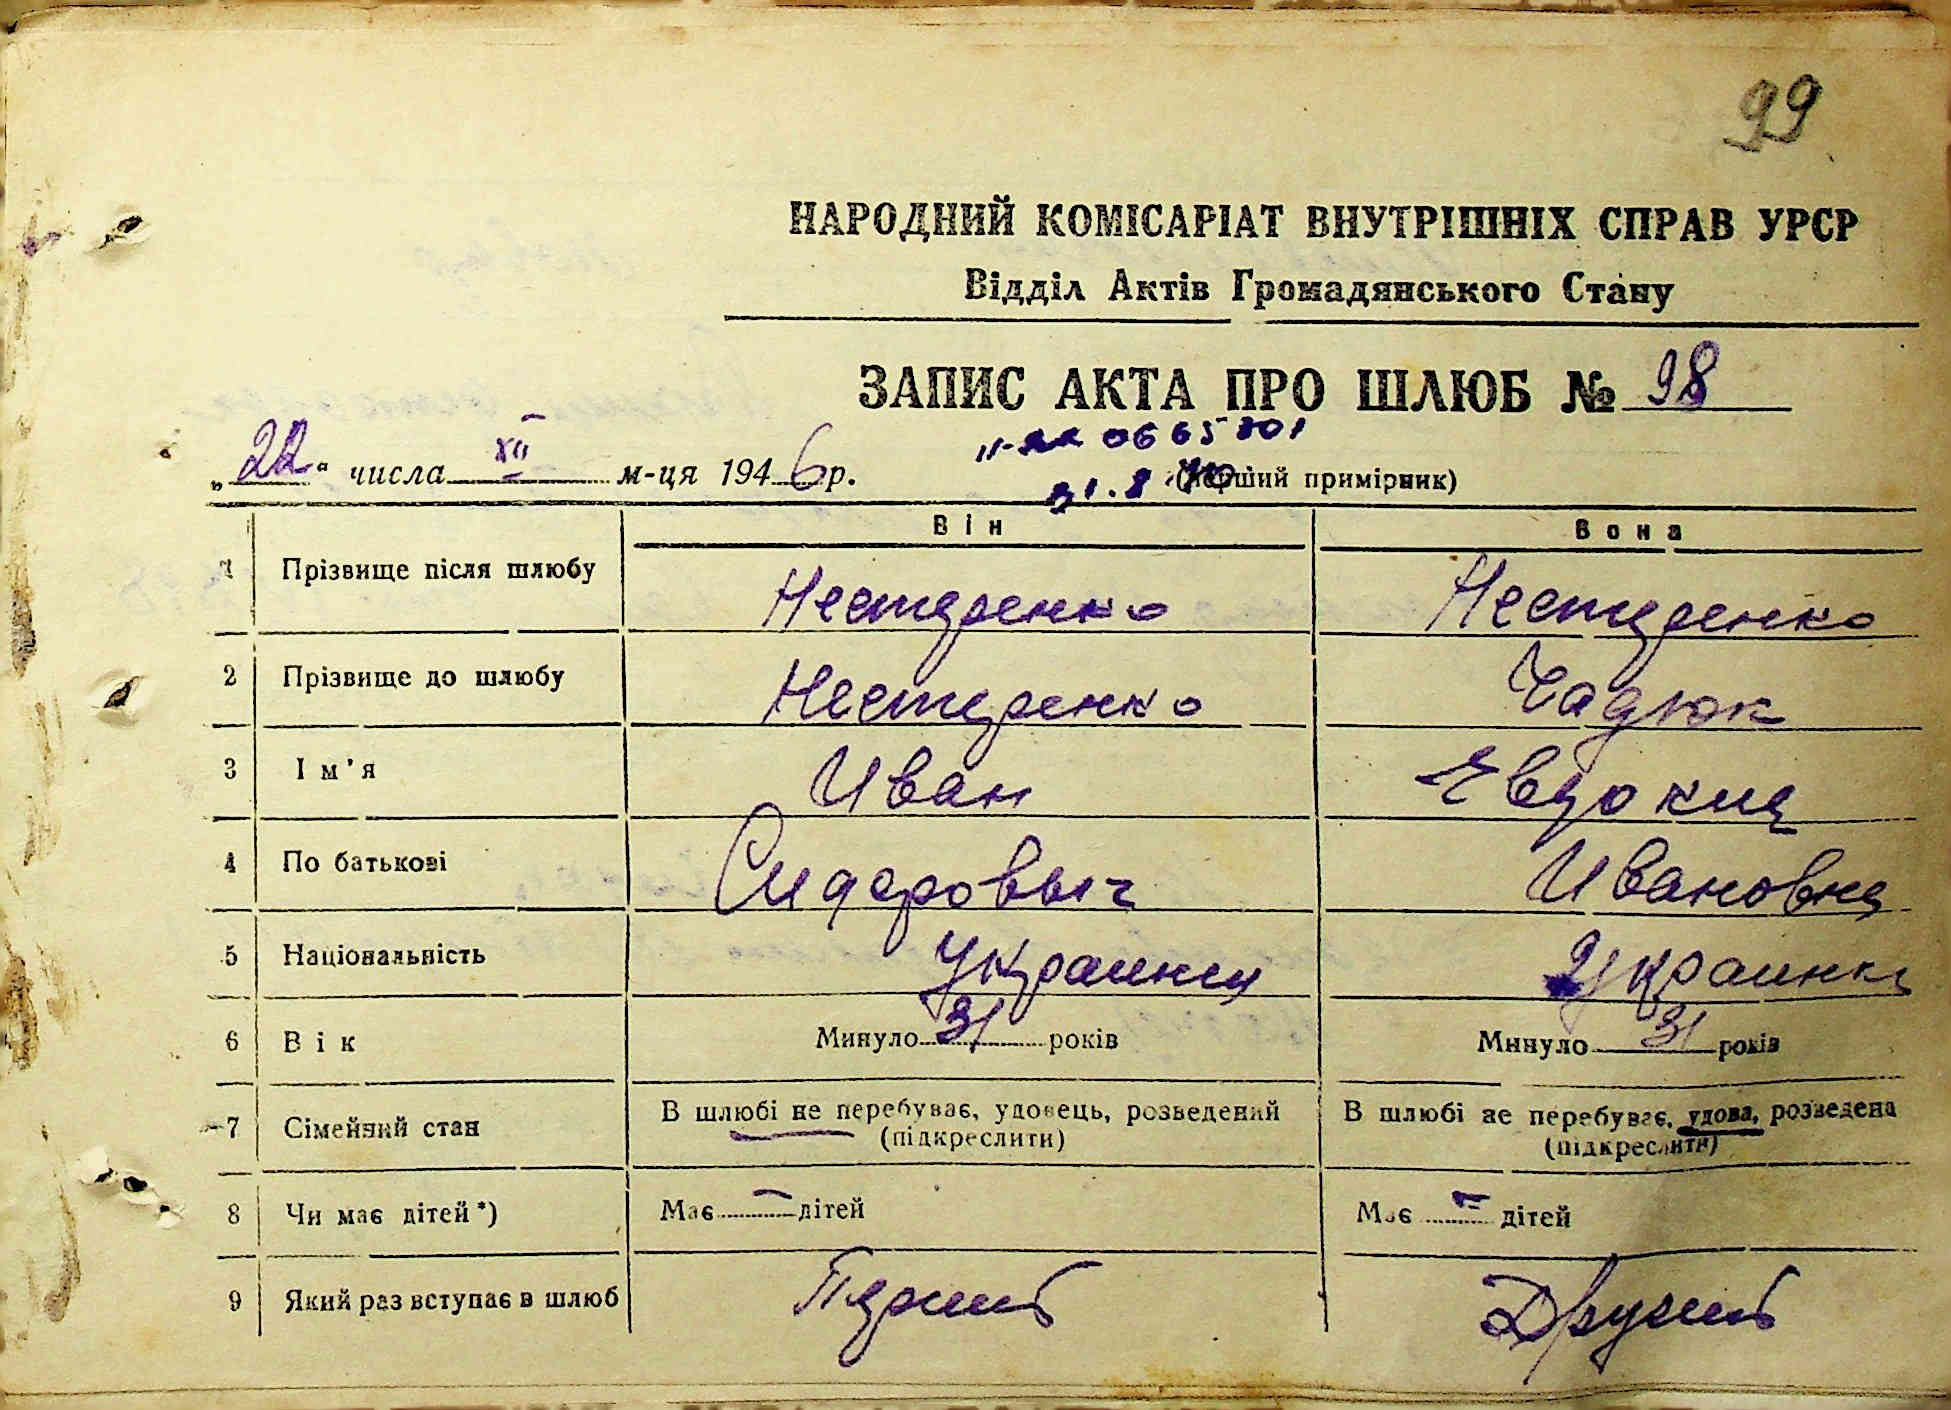 99
НАРОДНИЙ КОМІСАРІАТ ВНУТРІШНІХ СПРАВ УРСР
Відділ Актів Громадянського Стану
ЗАПИС АКТА ПРО ШЛЮБ № 98
„22“ числа XII м-ця 1946 р.
(Перший примірник)
Він Вона
1 Прізвище після шлюбу Нестеренко Нестеренко
2 Прізвище до шлюбу Нестеренко Чадюк
3 Ім'я Иван Евдокия
4 По батькові Сидеровыч Ивановна
5 Національність Украинец Украинка
6 Вік Минуло 31 років Минуло 31 років
7 Сімейний стан В шлюбі не перебуває, удовець, розведений (підкреслити) В шлюбі не перебуває, удова, розведена (підкреслити)
8 Чи має дітей*) Має — дітей Має — дітей
9 Який раз вступає в шлюб Перший Другий